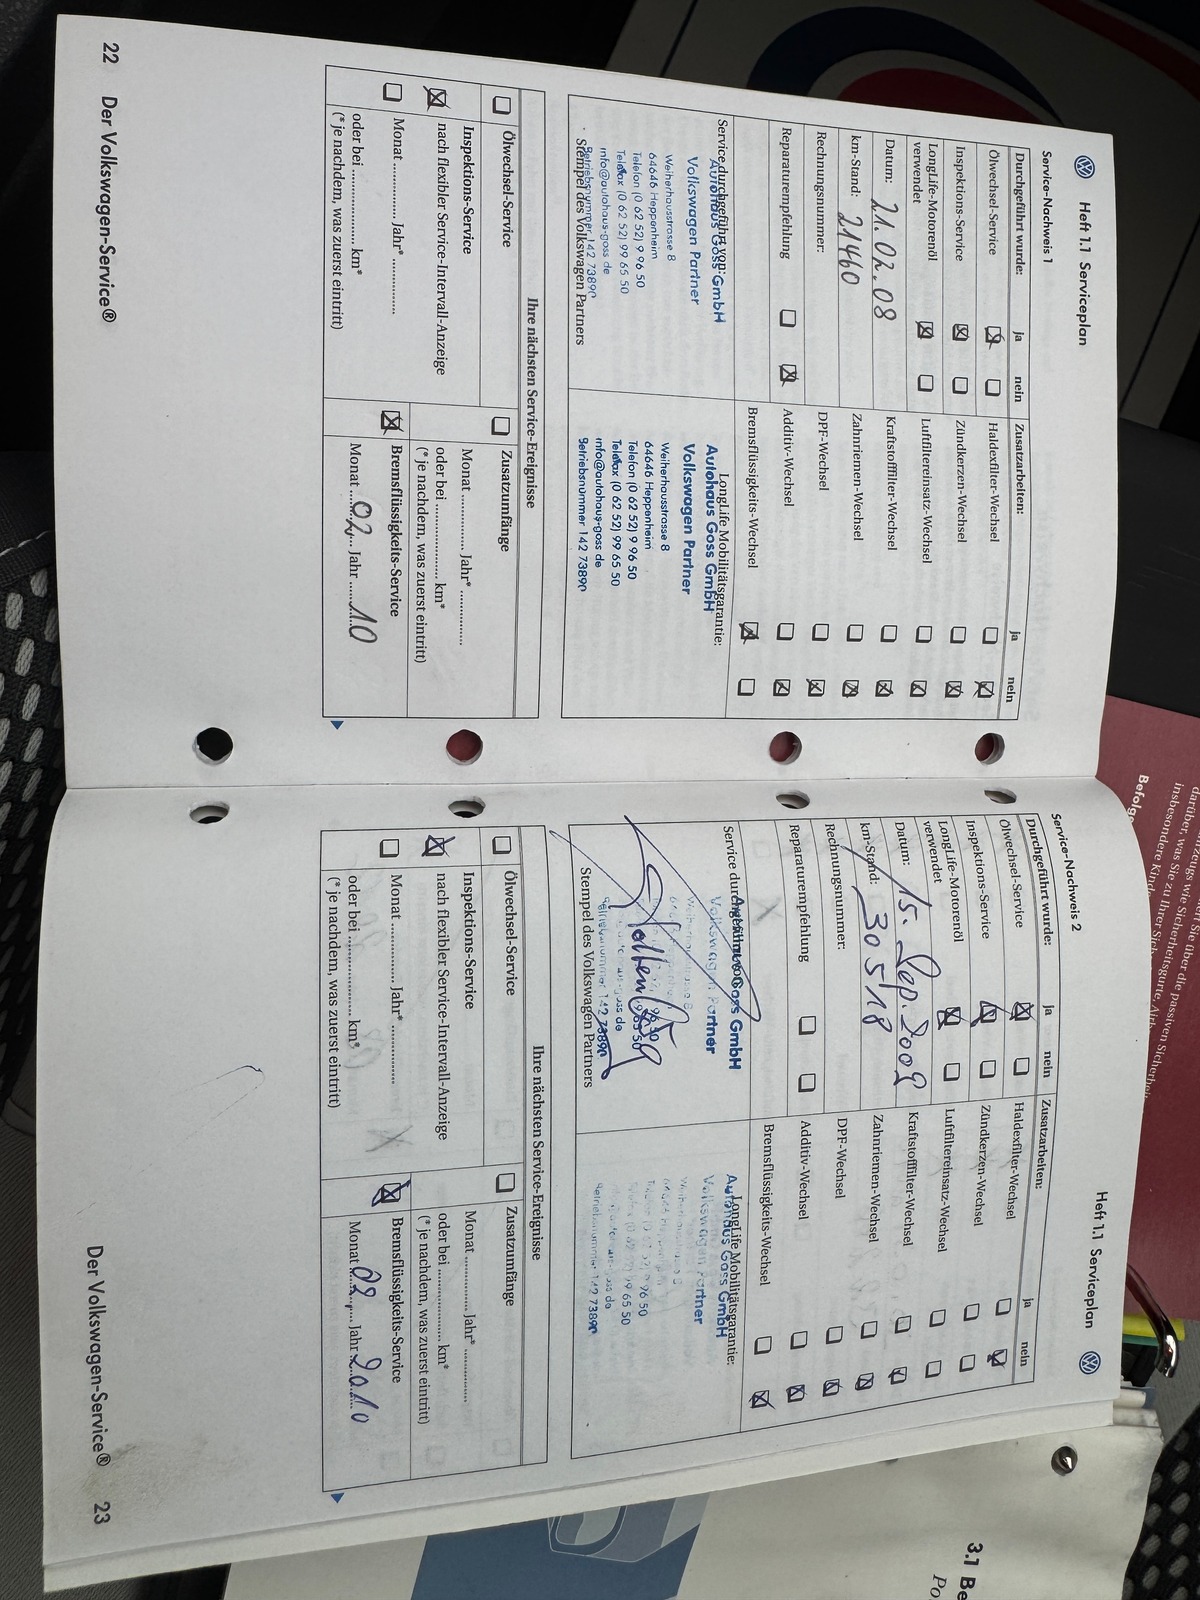 Heft 1.1 Serviceplan
Service-Nachweis 1
Durchgeführt wurde: ja nein
Ölwechsel-Service
Inspektions-Service
LongLife-Motorenöl
verwendet
Datum: 21.02.08
km-Stand: 21460
Rechnungsnummer:
Reparaturempfehlung
Zusatzarbeiten: ja nein
Haldexfilter-Wechsel
Zündkerzen-Wechsel
Luftfiltereinsatz-Wechsel
Kraftstofffilter-Wechsel
Zahnriemen-Wechsel
DPF-Wechsel
Additiv-Wechsel
Bremsflüssigkeits-Wechsel
Service durchgeführt von:
Autohaus Goss GmbH
Volkswagen Partner
Weiherhausstrasse 8
64646 Heppenheim
Telefon (0 62 52) 9 96 50
Telefax (0 62 52) 99 65 50
info@autohaus-goss de
Betriebsnummer 142 73890
Stempel des Volkswagen Partners
LongLife Mobilitätsgarantie:
Autohaus Goss GmbH
Volkswagen Partner
Weiherhausstrasse 8
64646 Heppenheim
Telefon (0 62 52) 9 96 50
Telefax (0 62 52) 99 65 50
info@autohaus-goss de
Betriebsnummer 142 73890
Ihre nächsten Service-Ereignisse
Ölwechsel-Service
Inspektions-Service
nach flexibler Service-Intervall-Anzeige
Monat ................ Jahr* ................
oder bei ................ km*
(* je nachdem, was zuerst eintritt)
Zusatzumfänge
Monat ................ Jahr* ................
oder bei ................ km*
(* je nachdem, was zuerst eintritt)
Bremsflüssigkeits-Service
Monat 02 Jahr 10
22 Der Volkswagen-Service®
Heft 1.1 Serviceplan
Service-Nachweis 2
Durchgeführt wurde: ja nein
Ölwechsel-Service
Inspektions-Service
LongLife-Motorenöl
verwendet
Datum: 15. Sep. 2009
km-Stand: 30518
Rechnungsnummer:
Reparaturempfehlung
Zusatzarbeiten: ja nein
Haldexfilter-Wechsel
Zündkerzen-Wechsel
Luftfiltereinsatz-Wechsel
Kraftstofffilter-Wechsel
Zahnriemen-Wechsel
DPF-Wechsel
Additiv-Wechsel
Bremsflüssigkeits-Wechsel
Service durchgeführt von:
Autohaus Goss GmbH
Volkswagen Partner
Betriebsnummer 142 73890
Stempel des Volkswagen Partners
LongLife Mobilitätsgarantie:
Autohaus Goss GmbH
Volkswagen Partner
Betriebsnummer 142 73890
Ihre nächsten Service-Ereignisse
Ölwechsel-Service
Inspektions-Service
nach flexibler Service-Intervall-Anzeige
Monat ................ Jahr* ................
oder bei ................ km*
(* je nachdem, was zuerst eintritt)
Zusatzumfänge
Monat ................ Jahr* ................
oder bei ................ km*
(* je nachdem, was zuerst eintritt)
Bremsflüssigkeits-Service
Monat 02 Jahr 2010
Der Volkswagen-Service® 23
Sie über die passiven
darüber, was Sie zu Ihrer Sicherheit
insbesondere
3.1 Be